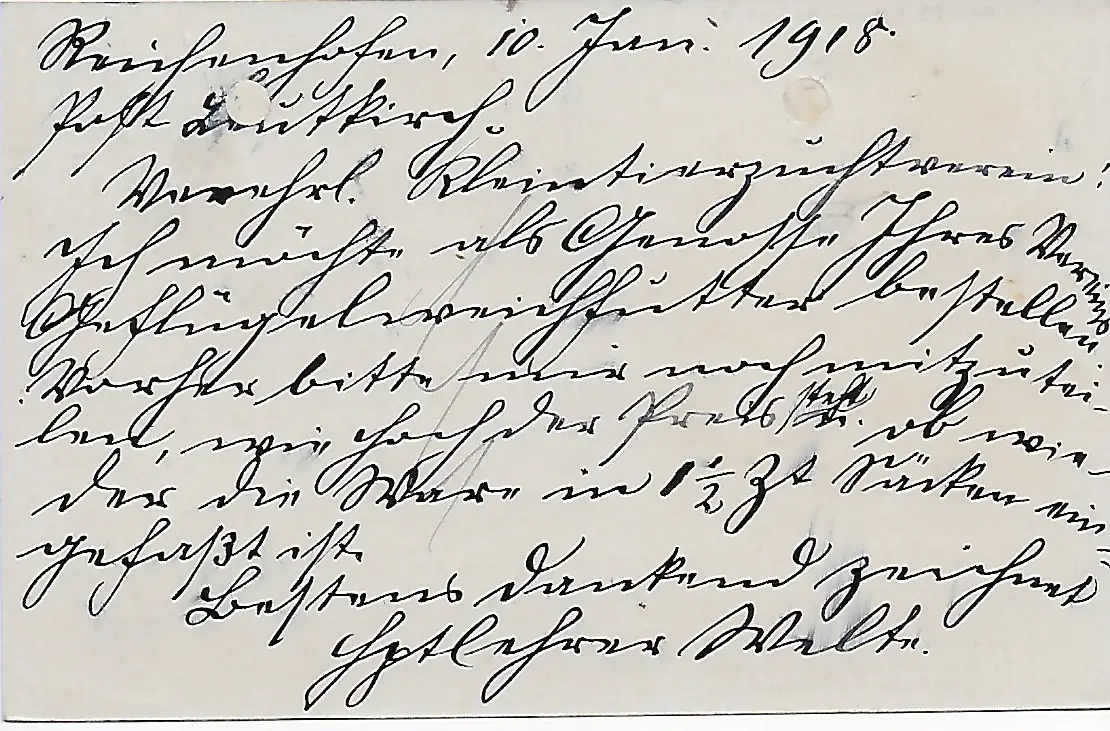 Reichenhofen, 10. Jan. 1918.
Post Leutkirch.
Verehrl. Kleintierzuchtverein!
Ich möchte als Genosse Ihres Vereins
Geflügelweichfutter bestellen
Vorher bitte mir noch mitzutei-
len, wie hoch der Preis steht u. ob wie-
der die Ware in 1 1/2 Zt Säcken ein-
gefaßt ist.
Bestens dankend zeichnet
Hptlehrer Welte.